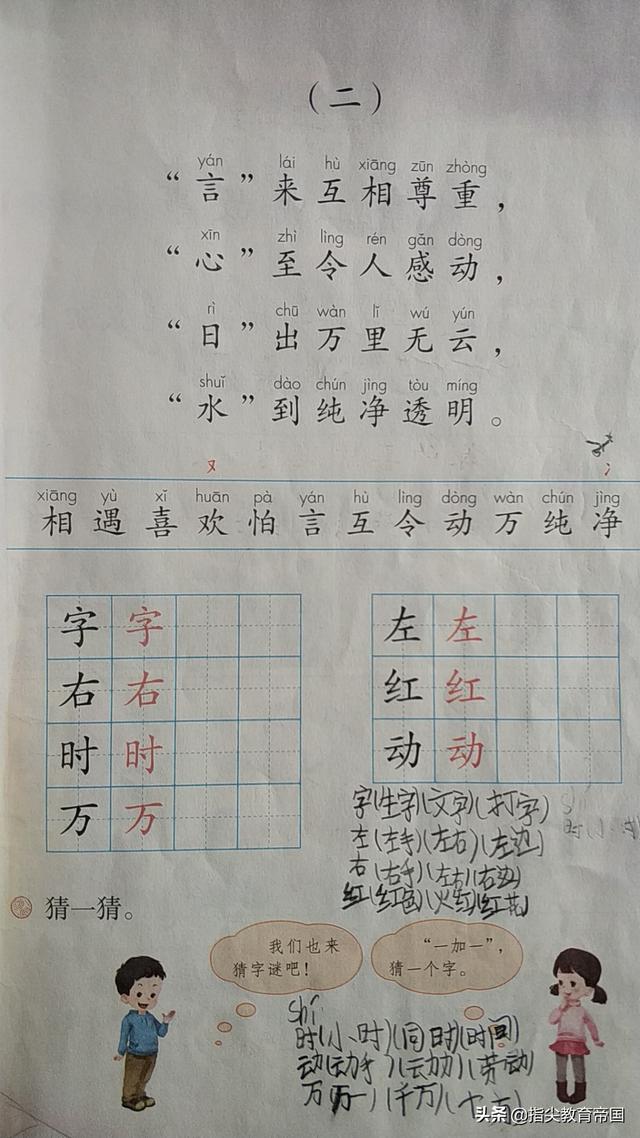 （二）
yán lái hù xiāng zūn zhòng
“言”来互相尊重，
xīn zhì lìng rén gǎn dòng
“心”至令人感动，
rì chū wàn lǐ wú yún
“日”出万里无云，
shuǐ dào chún jìng tòu míng
“水”到纯净透明。
又 冫
xiāng yù xǐ huān pà yán hù lìng dòng wàn chún jìng
相遇喜欢怕言互令动万纯净
字 字 左 左
右 右 红 红
时 时 动 动
万 万
字(生字)(文字)(打字)
左(左手)(左右)(左边)
右(右手)(左右)(右边)
红(红色)(火红)(红花)
猜一猜。
我们也来
猜字谜吧！
“一加一”，
猜一个字。
shí
时(小时)(同时)(时间)
动(动手)(动力)(劳动)
万(万一)(千万)
头条 @指尖教育帝国